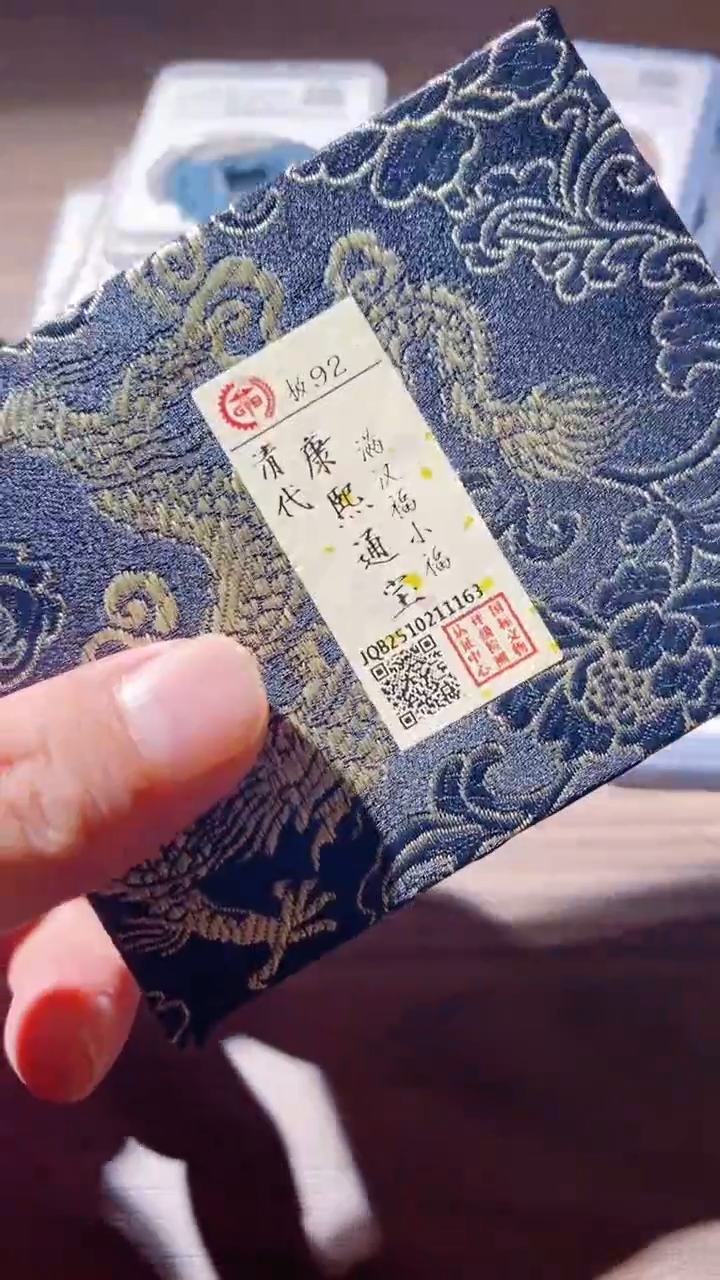 92
清代
康熙通宝
满汉福小福
JQB2510211163
国标文物
评级检测
认证中心